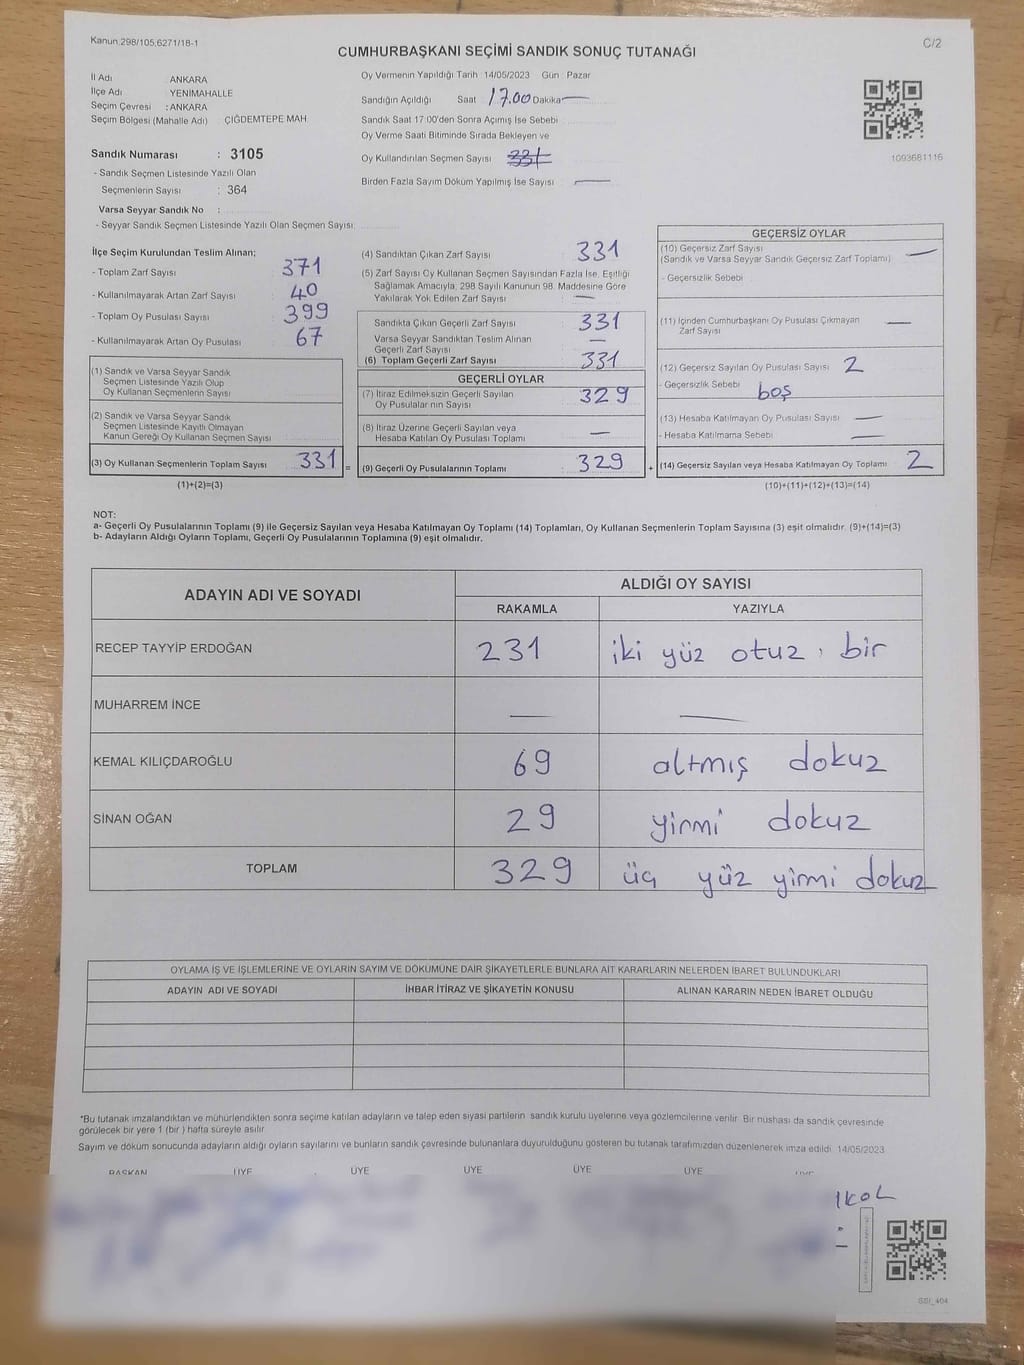 Kanun 298/105,6271/18-1
C/2
CUMHURBAŞKANI SEÇİMİ SANDIK SONUÇ TUTANAĞI
İl Adı ANKARA
İlçe Adı YENİMAHALLE
Seçim Çevresi : ANKARA
Seçim Bölgesi (Mahalle Adı) ÇİĞDEMTEPE MAH.
Sandık Numarası : 3105
- Sandık Seçmen Listesinde Yazılı Olan
Seçmenlerin Sayısı : 364
Varsa Seyyar Sandık No :
- Seyyar Sandık Seçmen Listesinde Yazılı Olan Seçmen Sayısı:
Oy Vermenin Yapıldığı Tarih 14/05/2023 Gün : Pazar
Sandığın Açıldığı Saat 17.00 Dakika —
Sandık Saat 17:00'den Sonra Açımış İse Sebebi
Oy Verme Saati Bitiminde Sırada Bekleyen ve
Oy Kullandırılan Seçmen Sayısı 331
Birden Fazla Sayım Döküm Yapılmış İse Sayısı —
1093681116
İlçe Seçim Kurulundan Teslim Alınan;
- Toplam Zarf Sayısı : 371
- Kullanılmayarak Artan Zarf Sayısı : 40
- Toplam Oy Pusulası Sayısı : 399
- Kullanılmayarak Artan Oy Pusulası : 67
(1) Sandık ve Varsa Seyyar Sandık
Seçmen Listesinde Yazılı Olup
Oy Kullanan Seçmenlerin Sayısı
(2) Sandık ve Varsa Seyyar Sandık
Seçmen Listesinde Kayıtlı Olmayan
Kanun Gereği Oy Kullanan Seçmen Sayısı
(3) Oy Kullanan Seçmenlerin Toplam Sayısı : 331 =
(1)+(2)=(3)
(4) Sandıktan Çıkan Zarf Sayısı : 331
(5) Zarf Sayısı Oy Kullanan Seçmen Sayısından Fazla İse, Eşitliği
Sağlamak Amacıyla, 298 Sayılı Kanunun 98. Maddesine Göre
Yakılarak Yok Edilen Zarf Sayısı : —
Sandıkta Çıkan Geçerli Zarf Sayısı : 331
Varsa Seyyar Sandıktan Teslim Alınan
Geçerli Zarf Sayısı : —
(6) Toplam Geçerli Zarf Sayısı : 331
GEÇERLİ OYLAR
(7) İtiraz Edilmeksizin Geçerli Sayılan
Oy Pusulalarının Sayısı : 329
(8) İtiraz Üzerine Geçerli Sayılan veya
Hesaba Katılan Oy Pusulası Toplamı : —
(9) Geçerli Oy Pusulalarının Toplamı : 329 +
GEÇERSİZ OYLAR
(10) Geçersiz Zarf Sayısı
(Sandık ve Varsa Seyyar Sandık Geçersiz Zarf Toplamı) : —
- Geçersizlik Sebebi
(11) İçinden Cumhurbaşkanı Oy Pusulası Çıkmayan
Zarf Sayısı —
(12) Geçersiz Sayılan Oy Pusulası Sayısı : 2
- Geçersizlik Sebebi : boş
(13) Hesaba Katılmayan Oy Pusulası Sayısı : —
- Hesaba Katılmama Sebebi : —
(14) Geçersiz Sayılan veya Hesaba Katılmayan Oy Toplamı : 2
(10)+(11)+(12)+(13)=(14)
NOT:
a- Geçerli Oy Pusulalarının Toplamı (9) ile Geçersiz Sayılan veya Hesaba Katılmayan Oy Toplamı (14) Toplamları, Oy Kullanan Seçmenlerin Toplam Sayısına (3) eşit olmalıdır. (9)+(14)=(3)
b- Adayların Aldığı Oyların Toplamı, Geçerli Oy Pusulalarının Toplamına (9) eşit olmalıdır.
ADAYIN ADI VE SOYADI
ALDIĞI OY SAYISI
RAKAMLA YAZIYLA
RECEP TAYYİP ERDOĞAN 231 iki yüz otuz bir
MUHARREM İNCE — —
KEMAL KILIÇDAROĞLU 69 altmış dokuz
SİNAN OĞAN 29 yirmi dokuz
TOPLAM 329 üç yüz yirmi dokuz
OYLAMA İŞ VE İŞLEMLERİNE VE OYLARIN SAYIM VE DÖKÜMÜNE DAİR ŞİKAYETLERLE BUNLARA AİT KARARLARIN NELERDEN İBARET BULUNDUKLARI
ADAYIN ADI VE SOYADI İHBAR İTİRAZ VE ŞİKAYETİN KONUSU ALINAN KARARIN NEDEN İBARET OLDUĞU
*Bu tutanak imzalandıktan ve mühürlendikten sonra seçime katılan adayların ve talep eden siyasi partilerin sandık kurulu üyelerine veya gözlemcilerine verilir. Bir nüshası da sandık çevresinde
görülecek bir yere 1 (bir ) hafta süreyle asılır.
Sayım ve döküm sonucunda adayların aldığı oyların sayılarını ve bunların sandık çevresinde bulunanlara duyurulduğunu gösteren bu tutanak tarafımızdan düzenlenerek imza edildi. 14/05/2023
BAŞKAN ÜYE ÜYE ÜYE ÜYE ÜYE ÜYE